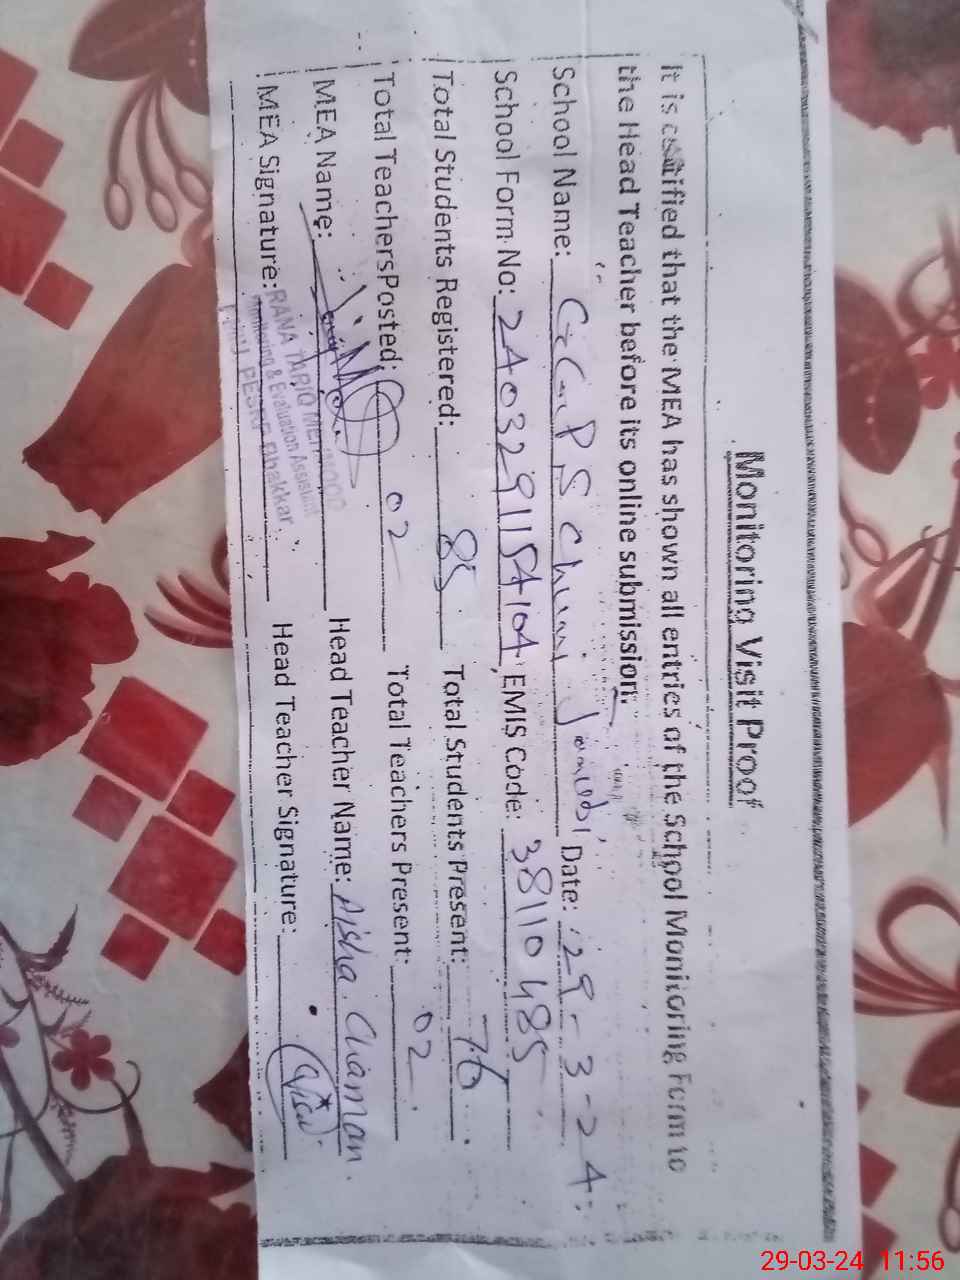 Monitoring Visit Proof
It is certified that the MEA has shown all entries of the School Monitoring Form to
the Head Teacher before its online submission.
School Name: GGCPS Chuni Date: 29-3-24
School Form No: 2403291154104 EMIS Code: 38110485
Total Students Registered: 85 Total Students Present: 76
Total TeachersPosted: 02 Total Teachers Present: 02
MEA Name: Head Teacher Name: Aisha Chaman
MEA Signature: Head Teacher Signature:
RANA TARIQ MEHMOOD
Monitoring & Evaluation Assistant
PESRP Bhakkar
29-03-24 11:56